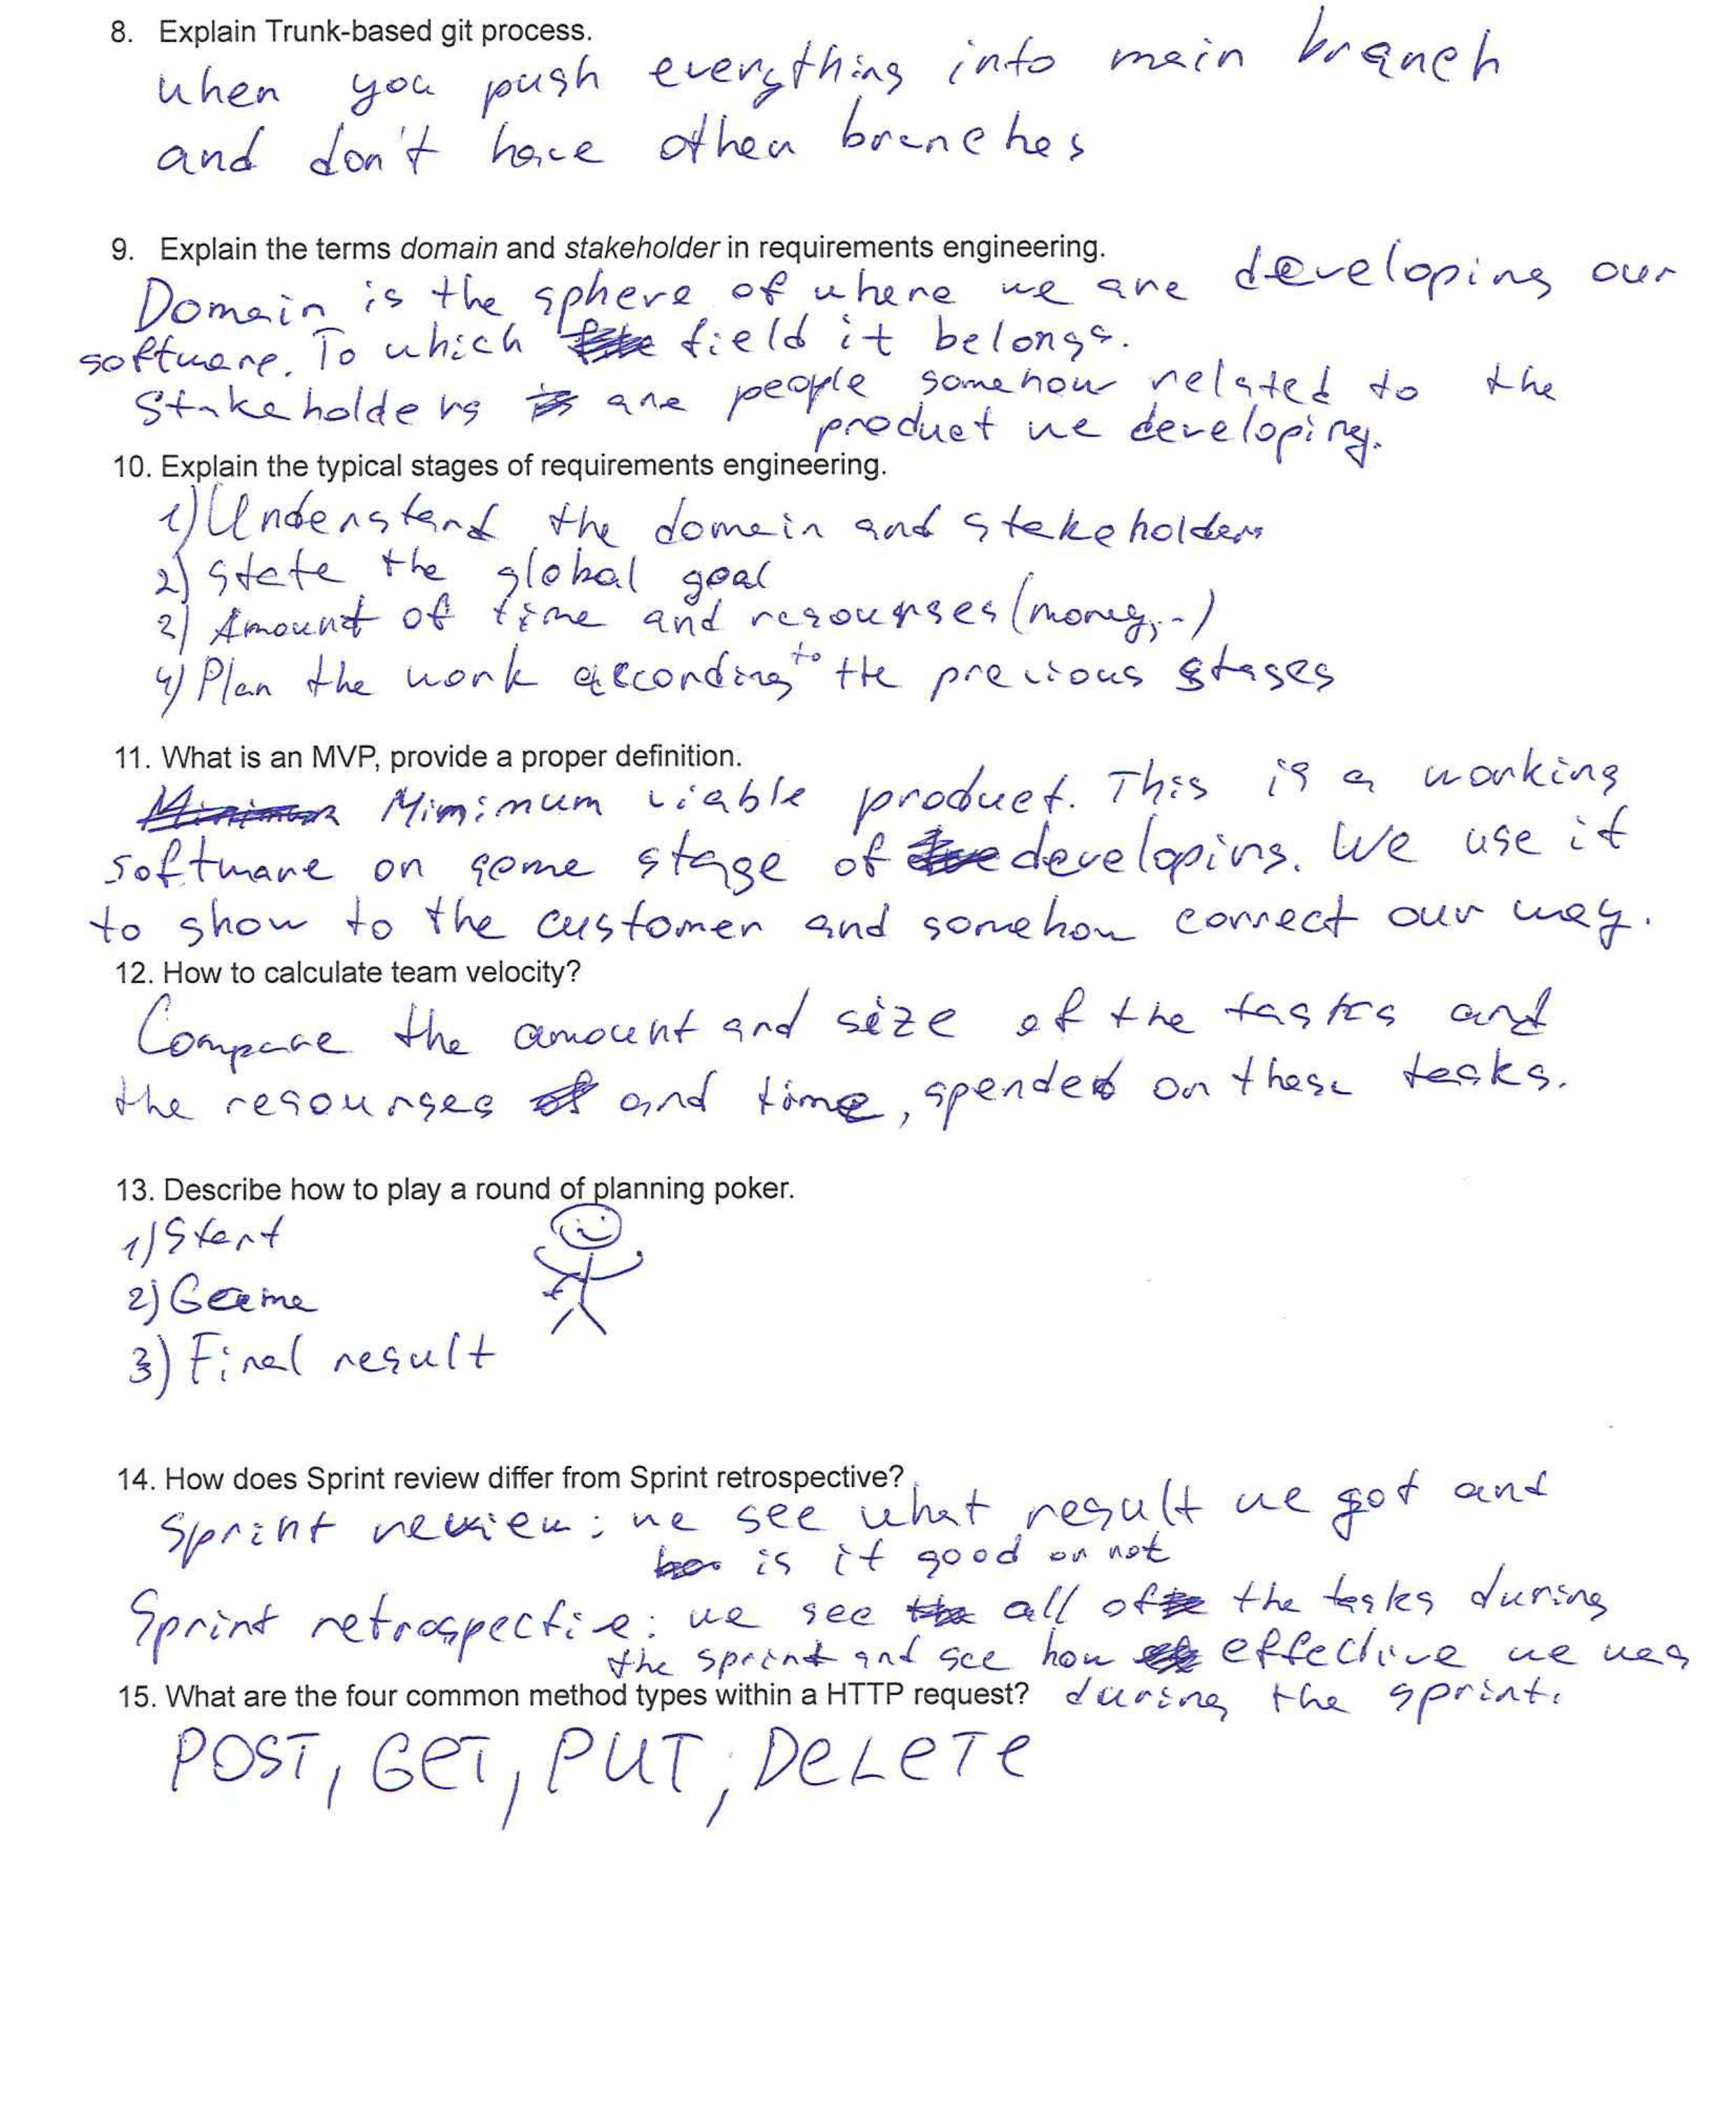 8. Explain Trunk-based git process.
when you push everything into main branch
and don't have other branches
9. Explain the terms domain and stakeholder in requirements engineering.
Domain is the sphere of where we are developing our
software. To which field it belongs.
Stakeholders are people somehow related to the
product we developing.
10. Explain the typical stages of requirements engineering.
1) Understand the domain and stakeholders
2) State the global goal
3) Amount of time and resourses (money,..)
4) Plan the work according to the previous stages
11. What is an MVP, provide a proper definition.
Mimimum viable product. This is a working
software on some stage of developing. We use it
to show to the customer and somehow correct our way.
12. How to calculate team velocity?
Compare the amount and size of the tasks and
the resourses and time, spended on these tasks.
13. Describe how to play a round of planning poker.
1) Start
2) Game
3) Final result
14. How does Sprint review differ from Sprint retrospective?
Sprint review: we see what result we got and
is it good or not
Sprint retrospective: we see all of the tasks during
the sprint and see how effective we was
during the sprint.
15. What are the four common method types within a HTTP request?
POST, GET, PUT, DELETE